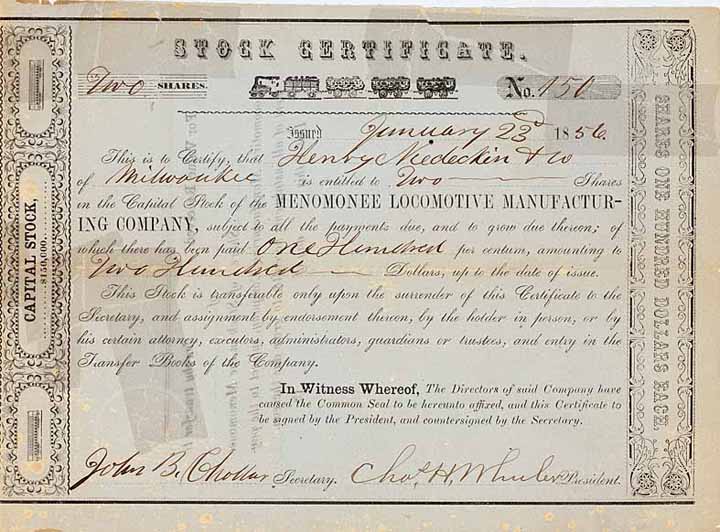 STOCK CERTIFICATE.
Two SHARES.
No. 150
Issued January 23d 1856.
This is to Certify, that Henry Niedeckin & Co
of Milwaukee is entitled to Two Shares
in the Capital Stock of the MENOMONEE LOCOMOTIVE MANUFACTUR-
ING COMPANY, subject to all the payments due, and to grow due thereon; of
which there has been paid One Hundred per centum, amounting to
Two Hundred Dollars, up to the date of issue.
This Stock is transferable only upon the surrender of this Certificate to the
Secretary, and assignment by endorsement thereon, by the holder in person, or by
his certain attorney, executors, administrators, guardians or trustees, and entry in the
Transfer Books of the Company.
In Witness Whereof, The Directors of said Company have
caused the Common Seal to be hereunto affixed, and this Certificate to
be signed by the President, and countersigned by the Secretary.
John B. Secretary. Chas. H. Wheeler President.
CAPITAL STOCK,
$150,000.
SHARES ONE HUNDRED DOLLARS EACH